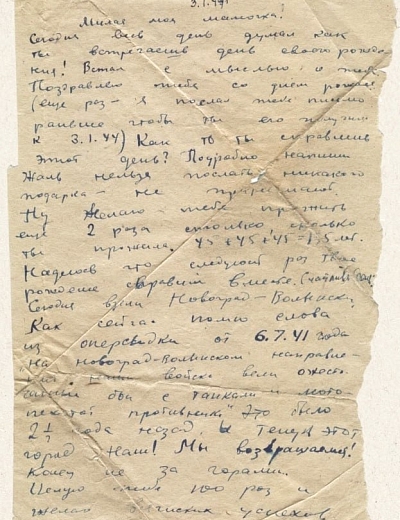 3.1.44
Милая моя мамочка!
Сегодня весь день думал как
ты встречаешь день своего рожде
ния! Встал с мыслью о тебе
Поздравляю тебя со днем рожде
(еще раз – я послал тебе письмо
раньше чтобы ты его получила
к 3.1.44) Как то ты справишь
этот день? Подробно напиши
Жаль нельзя послать никакого
подарка – не принимают.
Ну Желаю тебе прожить
еще 2 раза столько сколько
ты прожила. 45+45+45=135 лет.
Надеюсь что следующий раз твое
рождение справим вместе.
Сегодня взяли Новоград-Волынск.
Как сейчас помню слова
из оперсводки от 6.7.41 года
"на Новоград-Волынском направле
нии наши войска вели ожесто
ченные бои с танками и мото
пехотой противника" Это было
2½ года назад. И Теперь этот
город Наш! Мы возвращаемся!
Конец не за горами.
Целую тебя 100 раз и
желаю успехов